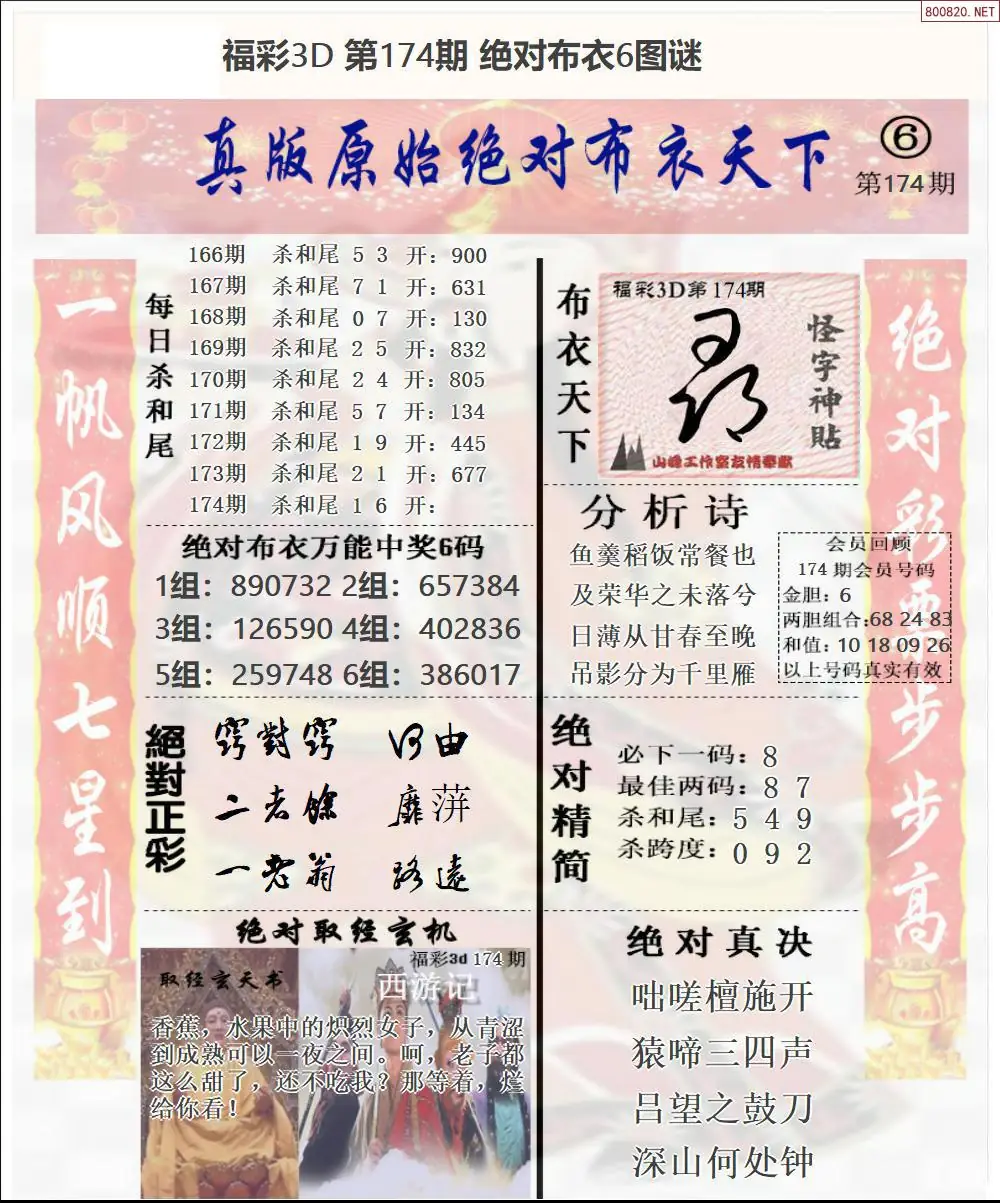 800820.NET
福彩3D 第174期 绝对布衣6图谜
真版原始绝对布衣天下
⑥
第174期
一帆风顺七星到
每日杀和尾
166期 杀和尾 5 3 开：900
167期 杀和尾 7 1 开：631
168期 杀和尾 0 7 开：130
169期 杀和尾 2 5 开：832
170期 杀和尾 2 4 开：805
171期 杀和尾 5 7 开：134
172期 杀和尾 1 9 开：445
173期 杀和尾 2 1 开：677
174期 杀和尾 1 6 开：
绝对布衣万能中奖6码
1组：890732 2组：657384
3组：126590 4组：402836
5组：259748 6组：386017
絕對正彩
窍對窍 河由
二老馀 靡蓱
一老翁 路遠
绝对取经玄机
福彩3d 174期
取经玄天书
西游记
香蕉，水果中的炽烈女子，从青涩
到成熟可以一夜之间。呵，老子都
这么甜了，还不吃我？那等着，烂
给你看！
布衣天下
福彩3D第174期
怪字神貼
山峰工作室友情奉献
分析诗
鱼羹稻饭常餐也
及荣华之未落兮
日薄从甘春至晚
吊影分为千里雁
会员回顾
174期会员号码
金胆：6
两胆组合:68 24 83
和值：10 18 09 26
以上号码真实有效
绝对精简
必下一码：8
最佳两码：8 7
杀和尾：5 4 9
杀跨度：0 9 2
绝对真决
咄嗟檀施开
猿啼三四声
吕望之鼓刀
深山何处钟
绝对彩票步步高